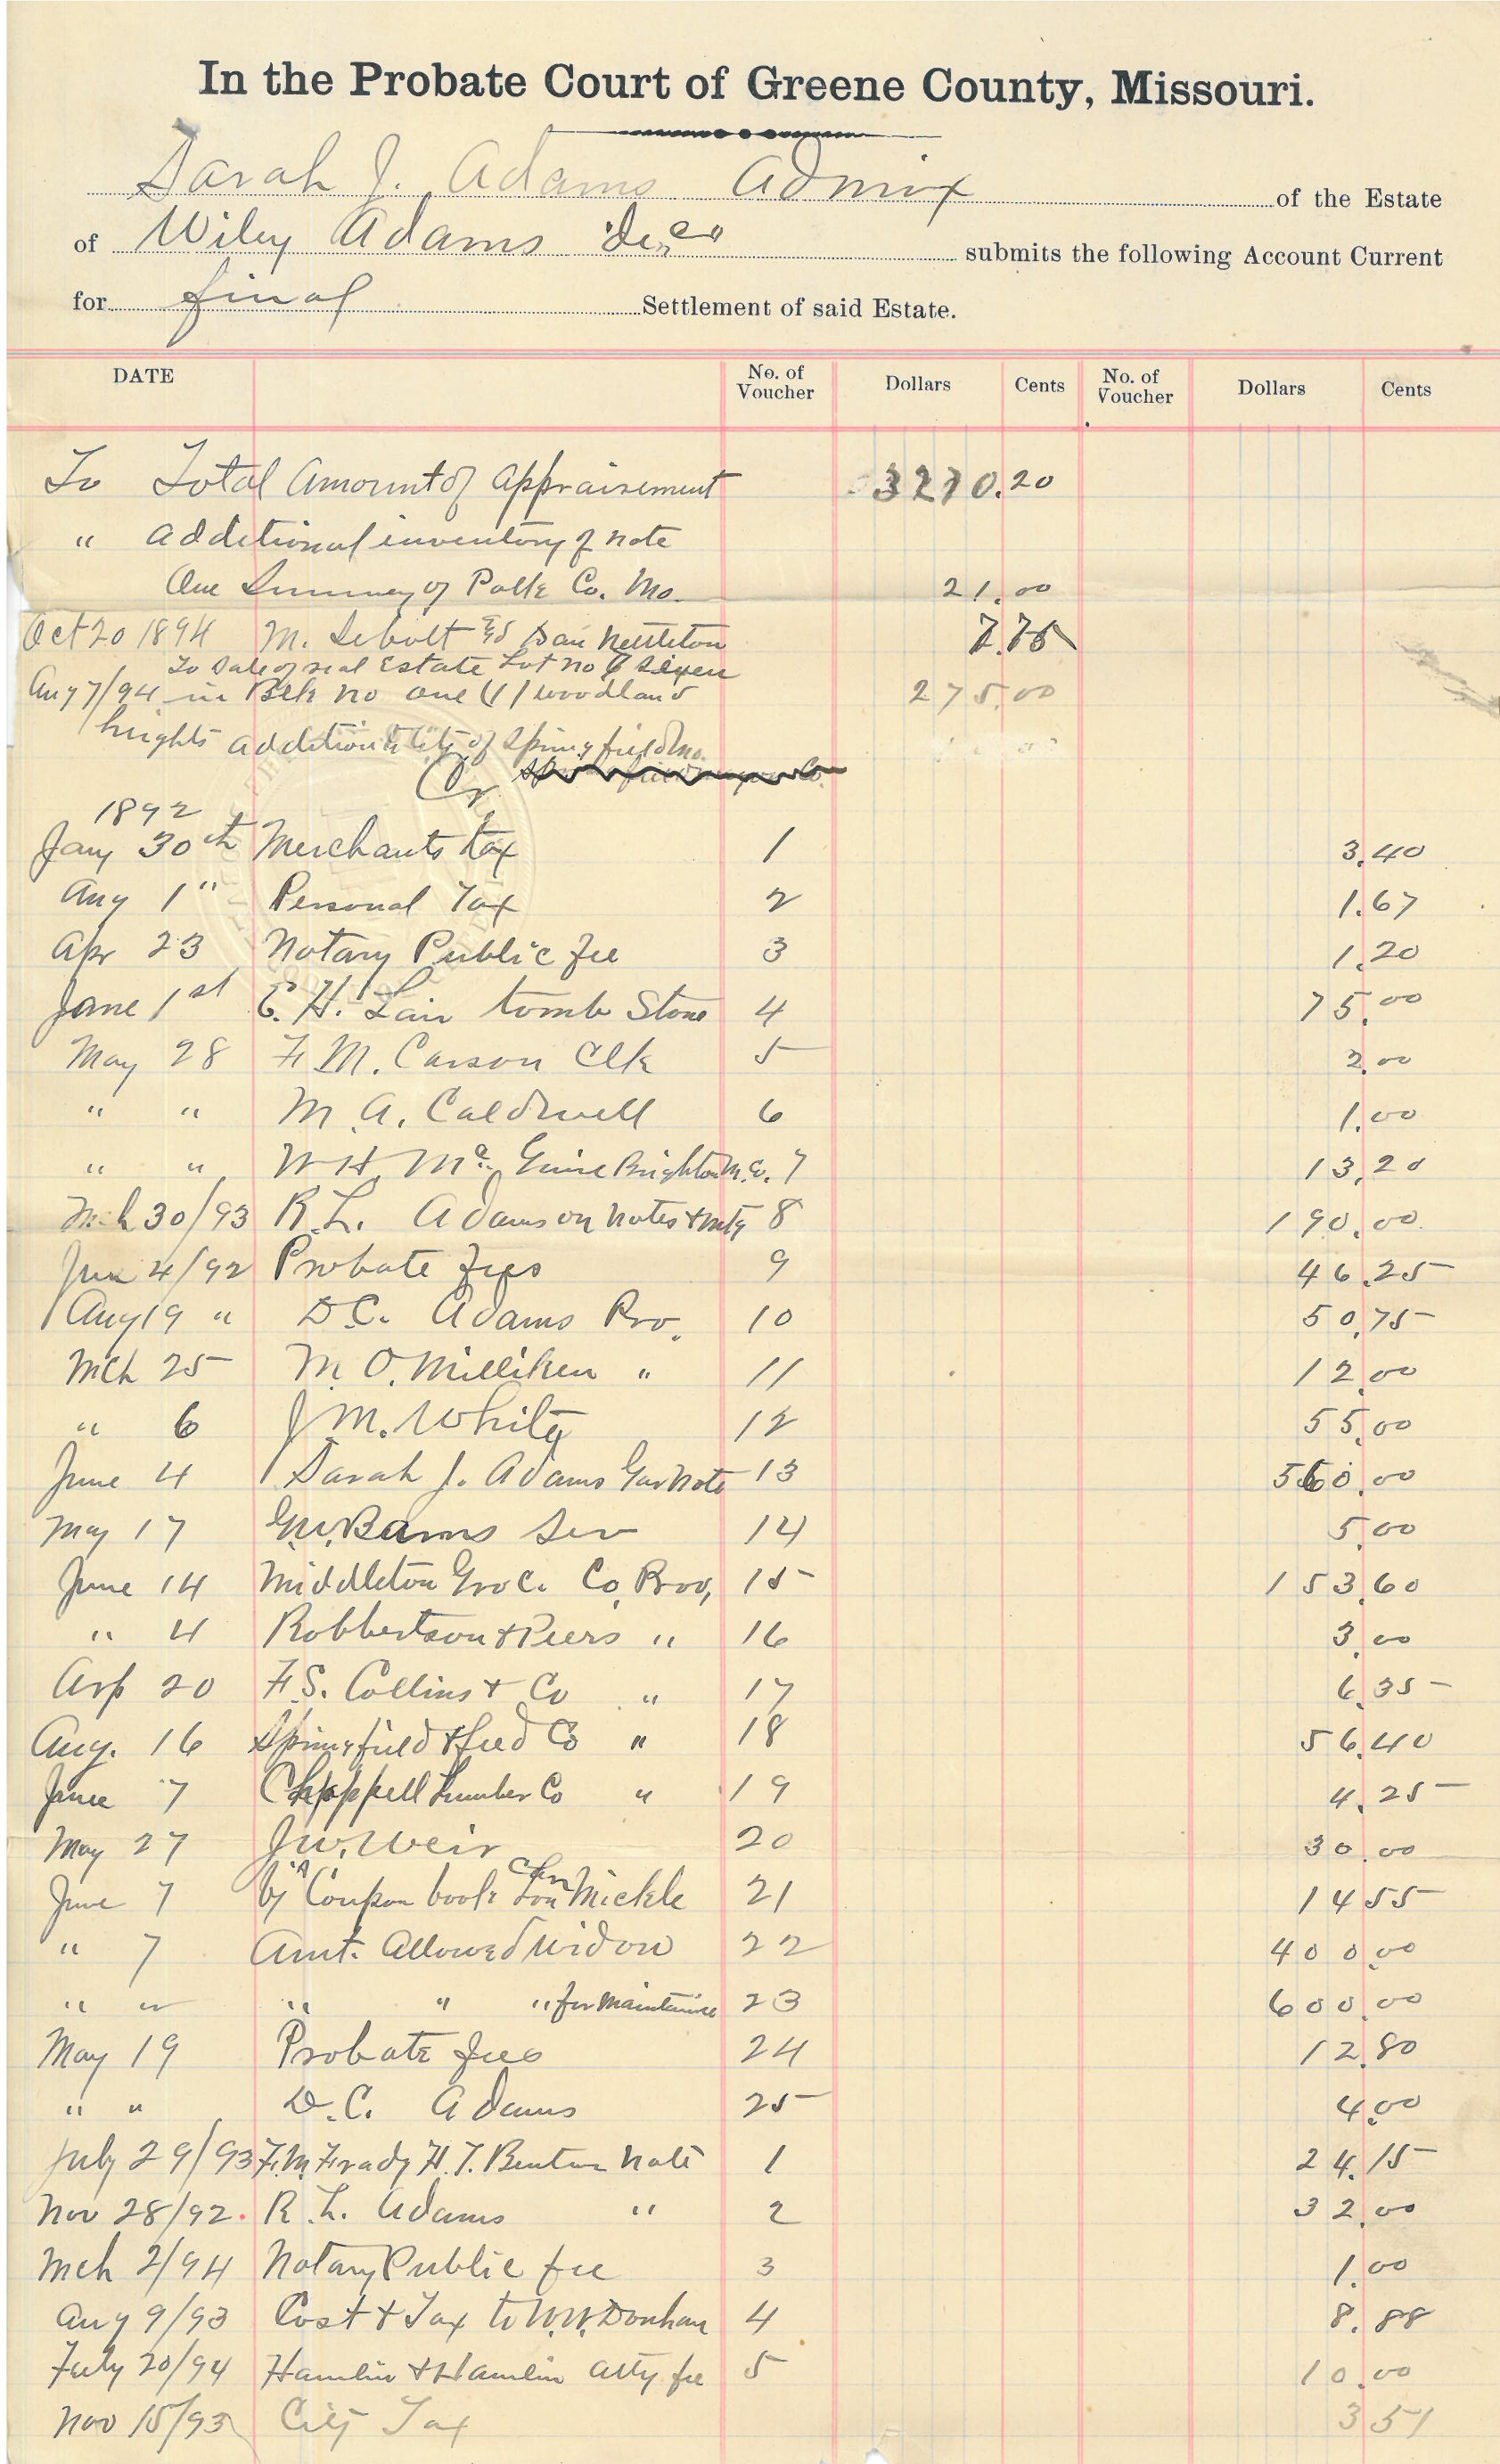 In the Probate Court of Greene County, Missouri.
Sarah J. Adams Admix of the Estate
of Wiley Adams submits the following Account Current
for final Settlement of said Estate.
DATE No. of Voucher Dollars Cents No. of Voucher Dollars Cents
To Total Amount of Appraisement 3270.20
" Additional inventory of note
One Polk Co. Mo. 21.00
Oct 20 1894 M. Dan Nettleton 7.75
To Sale of real Estate Lot no
Aug 7/94 in Blk no one (1) woodland 275.00
heights addition to City of Springfield Mo.
Cr
1892
Jany 30th Merchants tax 1 3.40
Aug 1" Personal Tax 2 1.67
Apr 23 Notary Public fee 3 1.20
June 1st E. H. Lair tomb Stone 4 75.00
May 28 F. M. Carson Clk 5 2.00
" " M. A. Caldwell 6 1.00
" " W H Brighton 7 13.20
Mch 30/93 R. L. Adams on notes & mtg 8 190.00
Jun 4/92 Probate fees 9 46.25
Aug 19 " D. C. Adams Pro. 10 50.75
Mch 25 M. O. Milliken " 11 12.00
" 6 J. M. White 12 55.00
June 4 Sarah J. Adams note 13 560.00
May 17 Ser 14 5.00
June 14 Middleton Groc. Co. Prov, 15 153.60
" 4 Robbertson & Peers " 16 3.00
Arp 20 F. S. Collins & Co " 17 6.35
Aug. 16 Springfield & feed Co " 18 56.40
June 7 Chappell Lumber Co " 19 4.25
May 27 J. W. Weir 20 30.00
June 7 by Coupon book Mickle 21 14 55
" 7 Amt. Allowed Widow 22 400.00
" " " " " for Maintaince 23 600.00
May 19 Probate fees 24 12.80
" " D. C. Adams 25 4.00
July 29/93 F. M. Frady H. T. Benton note 1 24.15
Nov 28/92. R. L. Adams " 2 32.00
Mch 2/94 Notary Public fee 3 1.00
Aug 9/93 Cost & Tax to W. W. Donham 4 8.88
July 20/94 Hamlin & Hamlin atty. fee 5 10.00
Nov 15/93 City Tax 3 51